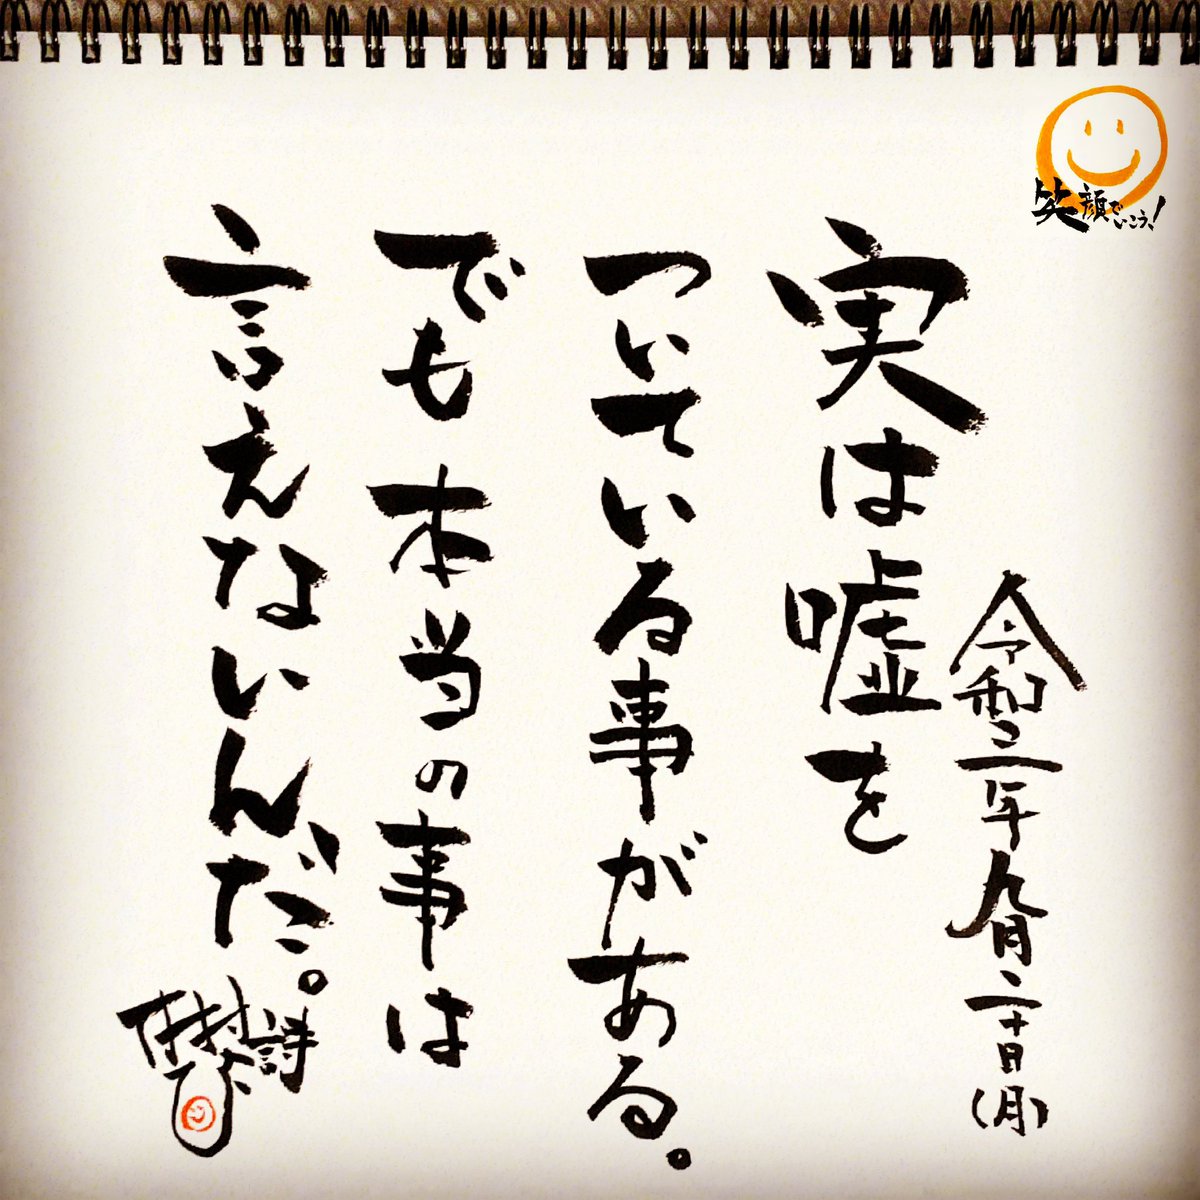 笑顔でいこう!
令和三年九月二十日(月)
実は嘘を
ついている事がある。
でも本当の事は
言えないんだ。
詩